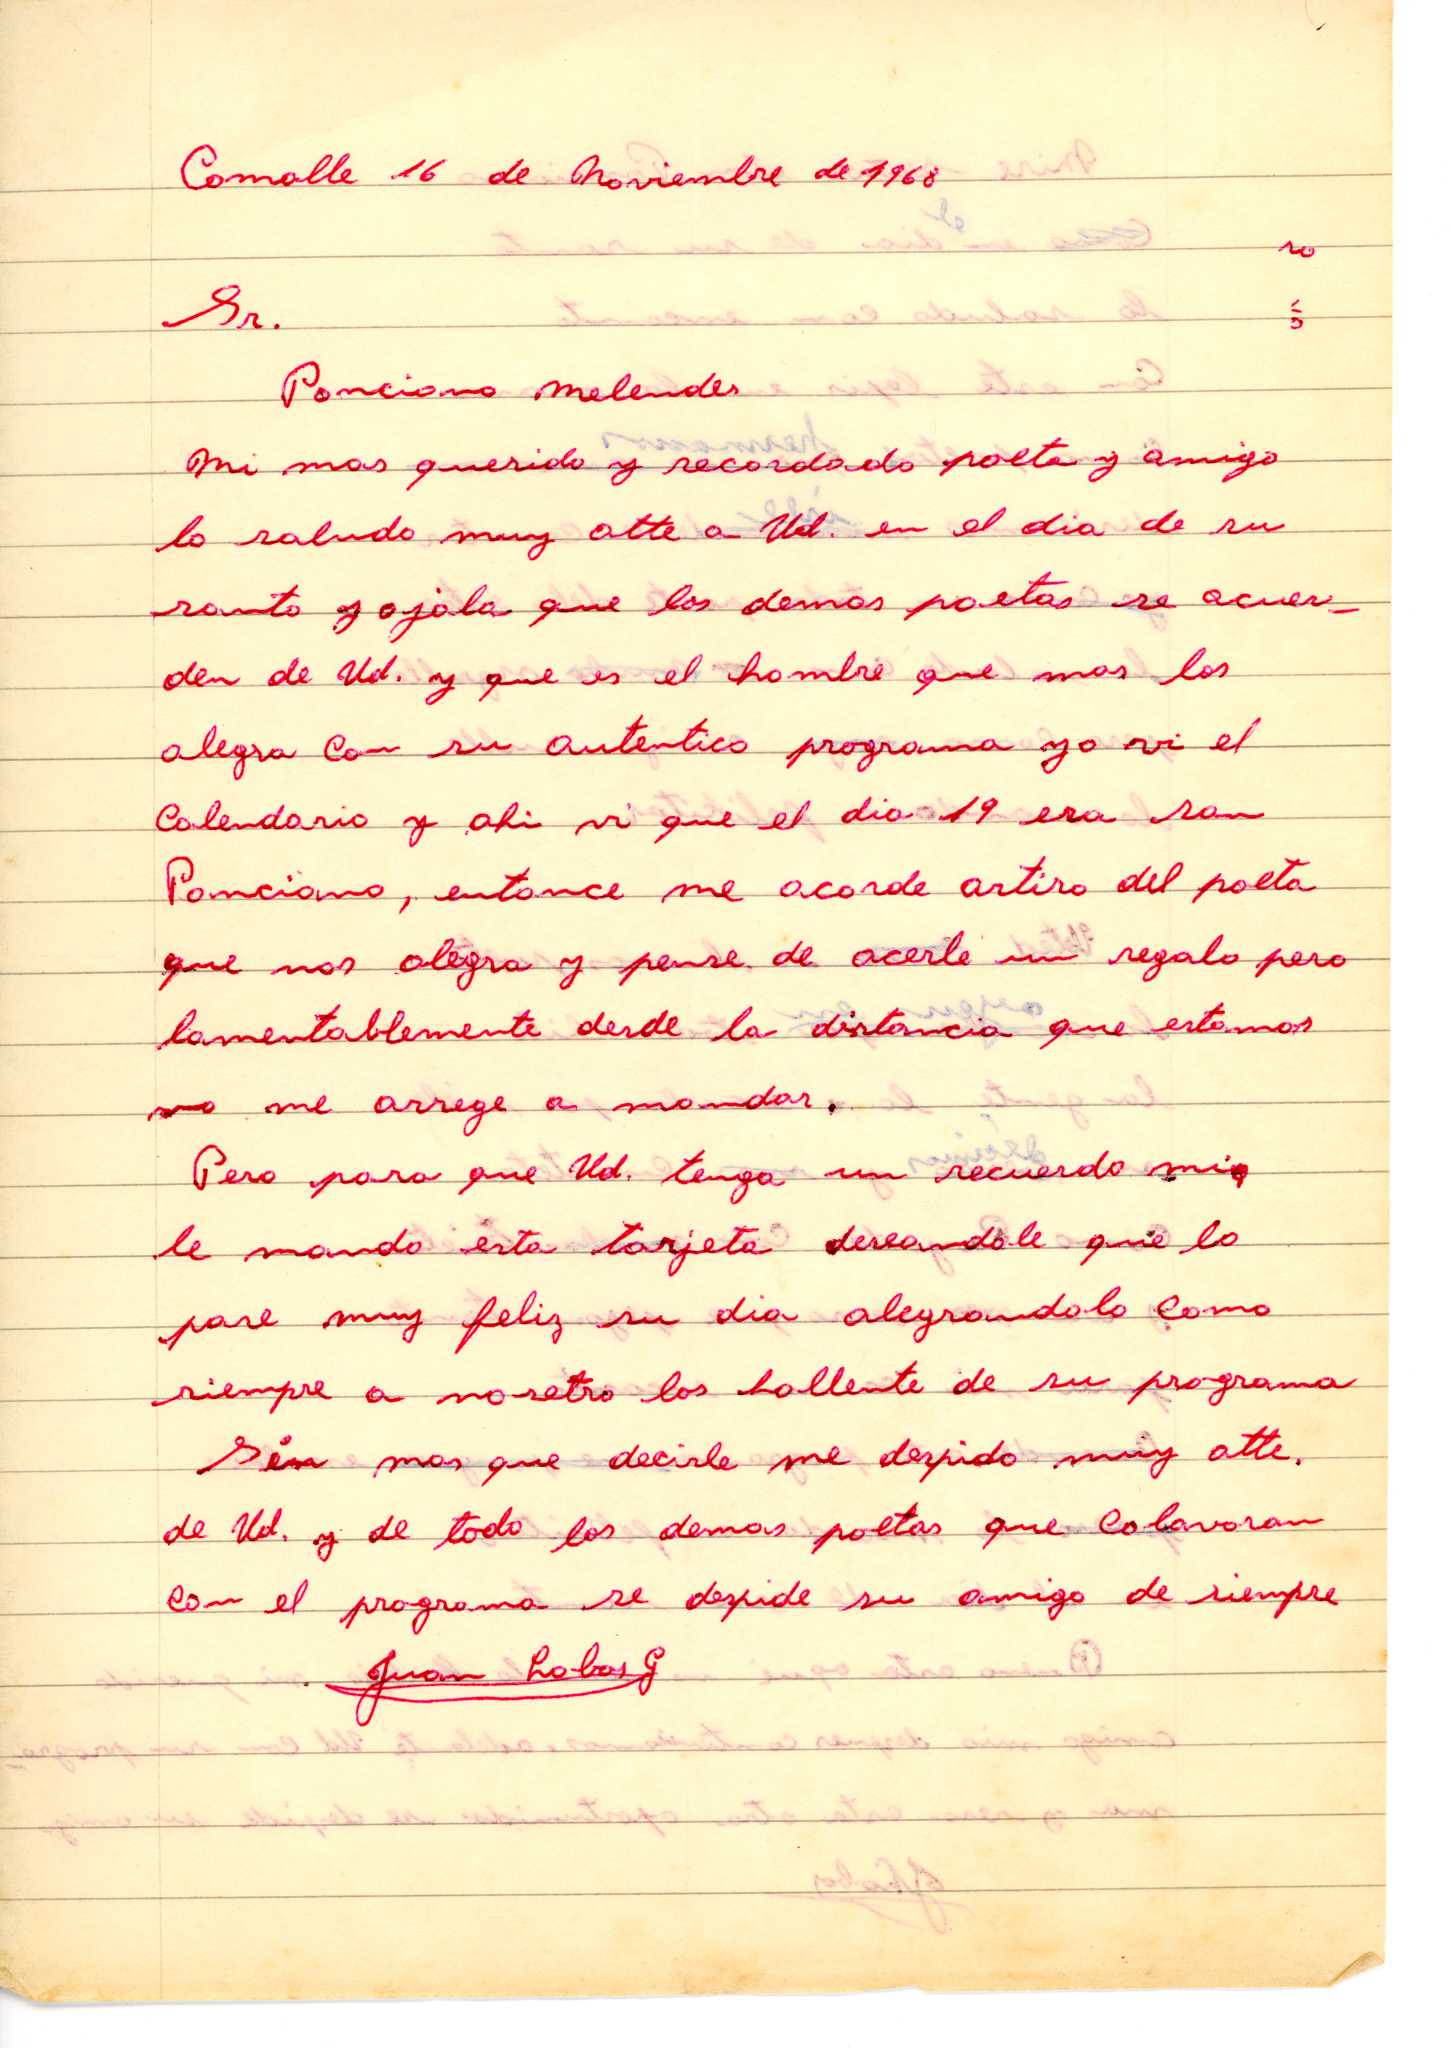 Comalle 16 de Noviembre de 1968
Sr.
Ponciano Melendes
Mi mas querido y recordado poeta y amigo
lo saludo muy atte a Ud. en el dia de su
santo y ojala que los demas poetas se acuer_
den de Ud. y que es el hombre que mas los
alegra con su autentico programa yo vi el
calendario y ahi vi que el dia 19 era san
Ponciano, entonce me acorde artiro del poeta
que nos alegra y pense de acerle un regalo pero
lamentablemente desde la distancia que estamos
no me arrege a mandar.
Pero para que Ud. tenga un recuerdo mio
le mando esta tarjeta deseandole que lo
pase muy feliz su dia alegrandolo como
siempre a nosetro los hallente de su programa
Sin mas que decirle me despido muy atte.
de Ud. y de todo los demas poetas que colavoran
con el programa se despide su amigo de siempre
Juan Lobos G